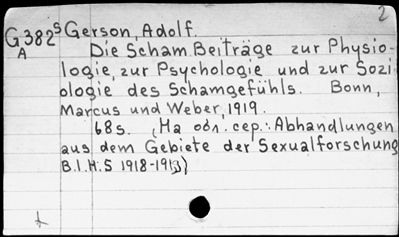 2
G382s Gerson, Adolf.
A Die Scham Beiträge zur Physio-
logie, zur Psychologie und zur Sozi
ologie des Schamgefühls. Bonn,
Marcus und Weber, 1919.
68s. (На обл. сер.: Abhandlungen
aus dem Gebiete der Sexualforschung
B.I.H.5 1918-1919)